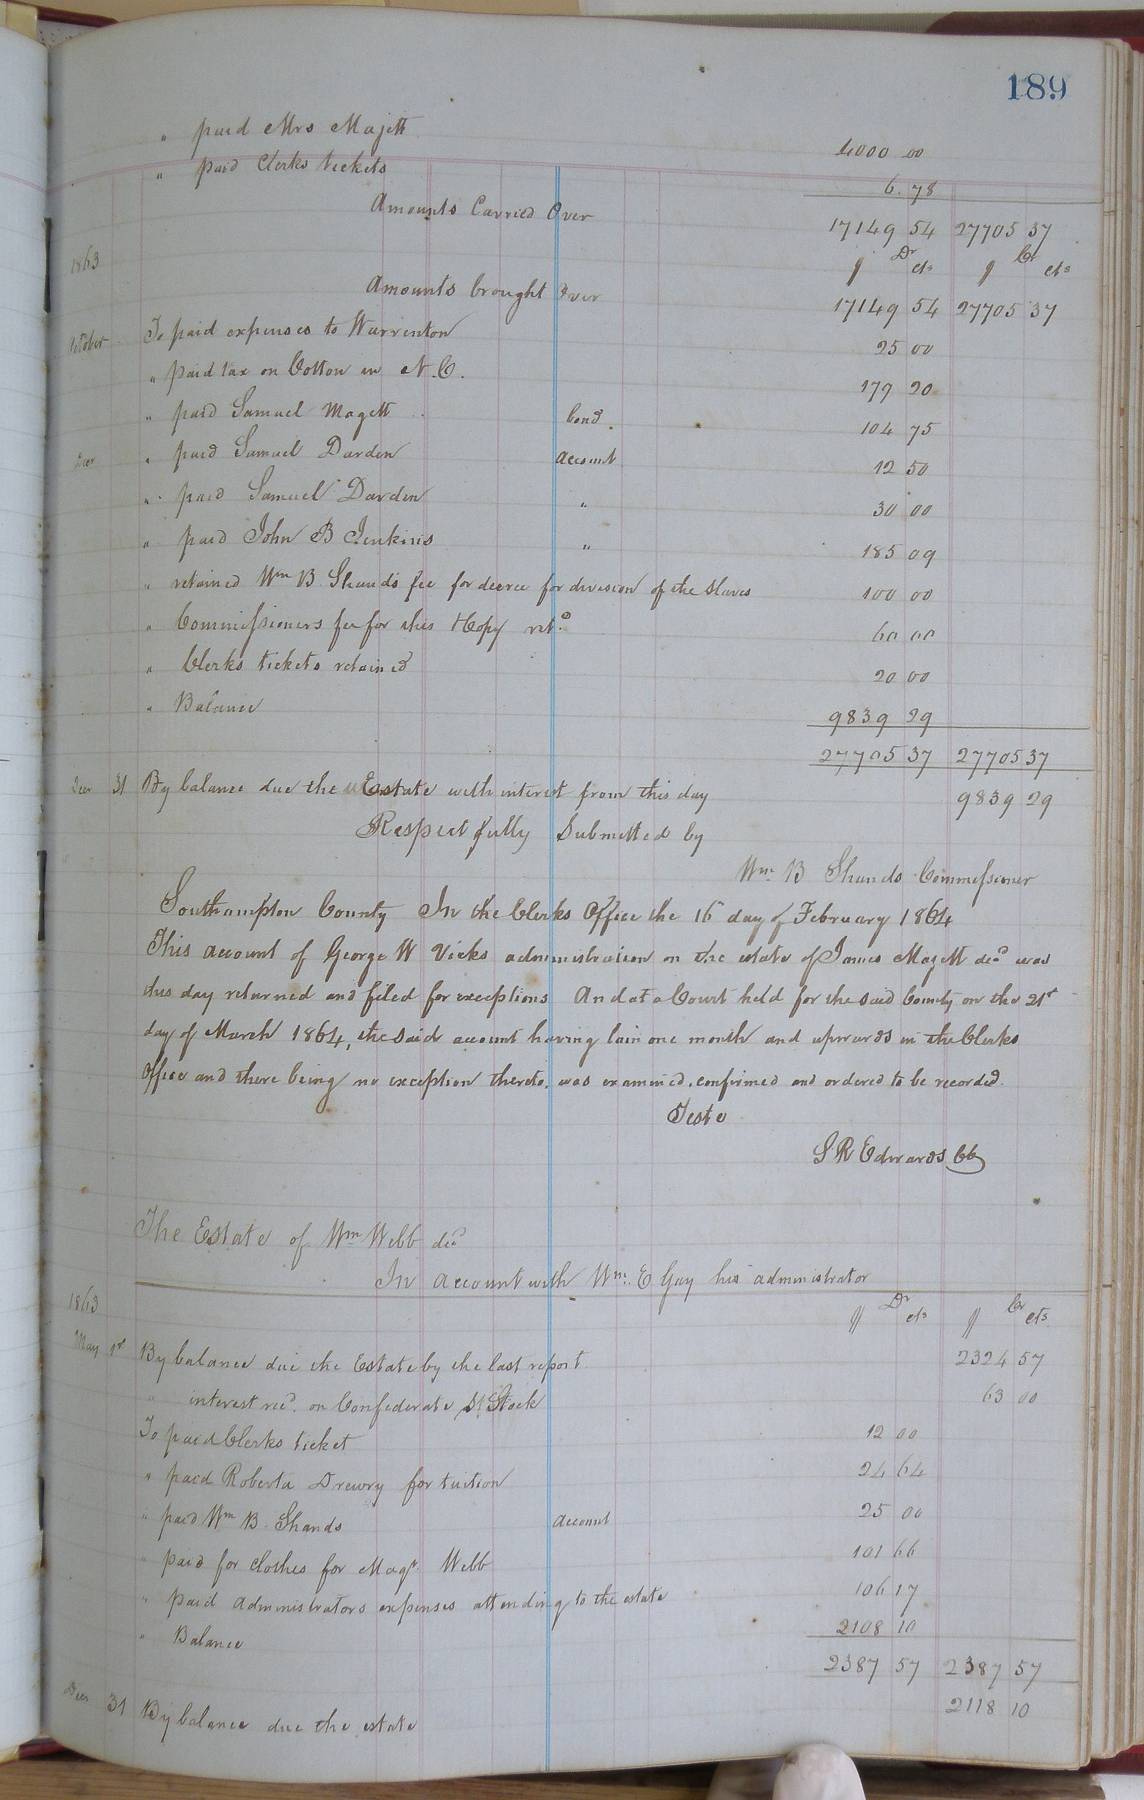 189
" paid Mrs Majett 4000 00
" paid Clerks tickets 6.78
Amounts Carried Over 17149 54 27705 37
1863 $ Dr cts $ Cr cts
Amounts brought Over 17149 54 27705 37
October To paid expenses to Warrenton 25 00
" paid tax on Cotton in N.C. 179 20
" paid Samuel Magett bond. 104 75
Decr " paid Samuel Darden account 12 50
" paid Samuel Darden " 30 00
" paid John B Jenkins " 185 09
" retained Wm B. Shands fee for decree for division of the slaves 100 00
" Commissioners fee for this & Copy retd 60 00
" Clerks tickets retained 20 00
" Balance 9839 29
27705 37 27705 37
Decr 31 By balance due the Estate with interest from this day 9839 29
Respectfully Submitted by
Wm B Shands Commissioner
Southampton County In the Clerks Office the 16 day of February 1864
This account of George W Vicks administration on the estate of James Magett decd was
this day returned and filed for exceptions And at a Court held for the said County on the 21st
day of March 1864, the said account having lain one month and upwards in the Clerks
Office and there being no exception thereto, was examined, confirmed and ordered to be recorded.
Teste
S R Edwards CC
The Estate of Wm Webb decd
In account with Wm. E Gay his administrator
1863 $ Dr cts $ Cr cts
May 1st By balance due the Estate by the last report 2324 57
" interest recd. on Confederate St Stock 63 00
To paid Clerks ticket 12 00
" paid Roberta Drewry for tuition 24 64
" paid Wm B. Shands account 25 00
" paid for clothes for Magt Webb 101 66
" paid administrators expenses attending to the estate 106 17
" Balance 2108 10
2387 57 2387 57
Decr 31 By balance due the estate 2118 10